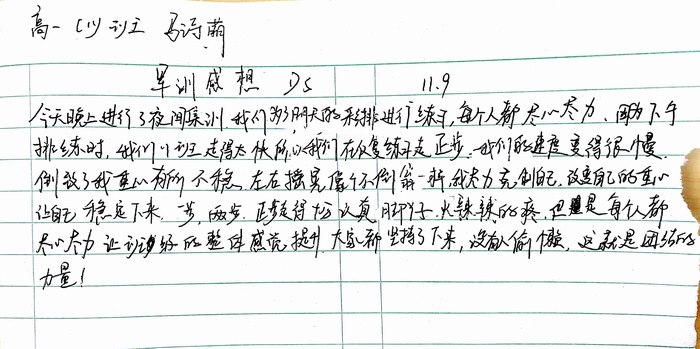 高一(11)班 马诗萌
军训感想 D5 11.9
今天晚上进行了夜间集训,我们为了明天的彩排进行练习,每个人都尽心尽力,因为下午
排练时,我们11班走得太快,所以我们在反复练习走正步。我们的速度变得很慢,
倒致了我重心有所不稳,左右摇晃像个不倒翁一样,我尽力克制自己,改变自己的重心
让自己稳定下来,一步,两步,正步走得十分认真,脚丫子火辣辣的疼,但是每个人都
尽心尽力让班级的整体感觉提升,大家都坚持了下来,没有人偷懒,这就是团结的
力量!